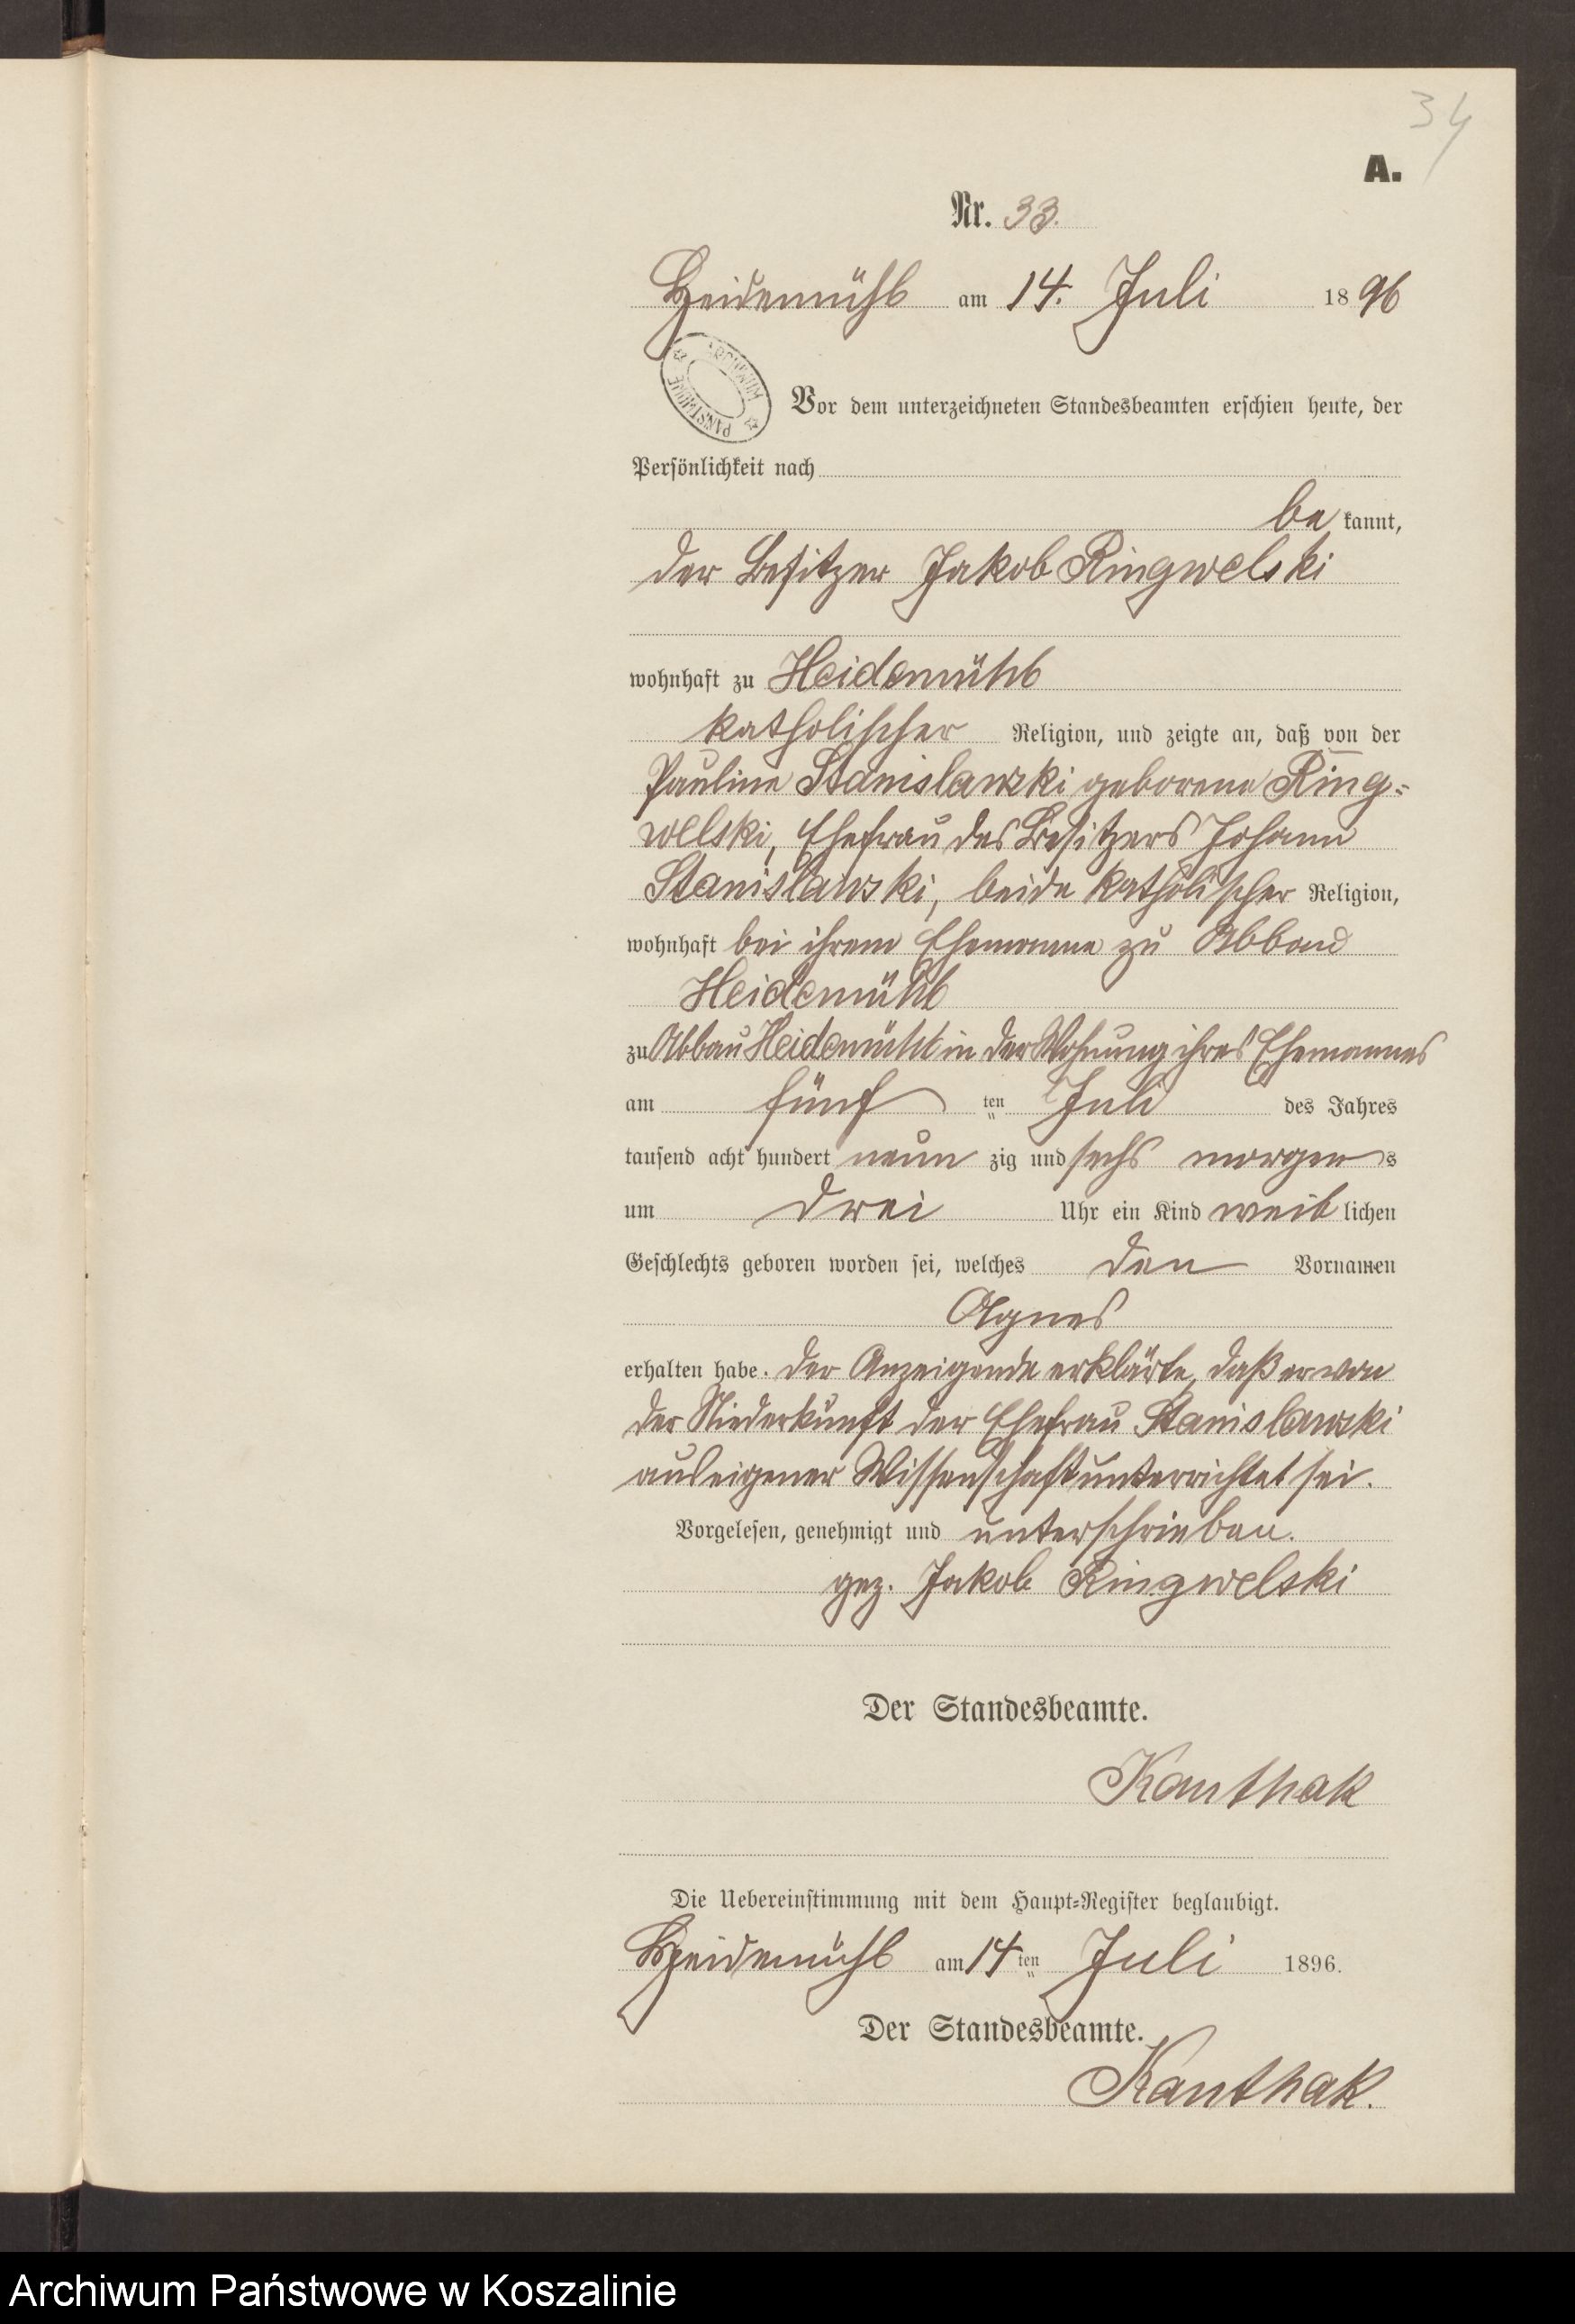 34
A.
Nr. 33.
Heidemühl am 14. Juli 1896
ARCHIWUM PAŃSTWOWE
Vor dem unterzeichneten Standesbeamten erschien heute, der
Persönlichkeit nach
be kannt,
der Besitzer Jakob Ringwelski
wohnhaft zu Heidemühl
katholischer Religion, und zeigte an, daß von der
Pauline Stanislawski geborene Ring=
welski, Ehefrau des Besitzers Johann
Stanislawski, beide katholischer Religion,
wohnhaft bei ihrem Ehemanne zu Abbau
Heidemühl
zu Abbau Heidemühl in der Wohnung ihres Ehemannes
am fünf ten Juli des Jahres
tausend acht hundert neun zig und sechs morgen s
um drei Uhr ein Kind weib lichen
Geschlechts geboren worden sei, welches den Vornamen
Agnes
erhalten habe. Der Anzeigende erklärte, daß er von
der Niederkunft der Ehefrau Stanislawski
aus eigener Wissenschaft unterrichtet sei.
Vorgelesen, genehmigt und unterschrieben.
gez. Jakob Ringwelski
Der Standesbeamte.
Kanthak
Die Uebereinstimmung mit dem Haupt=Register beglaubigt.
Heidemühl am 14 ten Juli 1896.
Der Standesbeamte.
Kanthak.
Archiwum Państwowe w Koszalinie